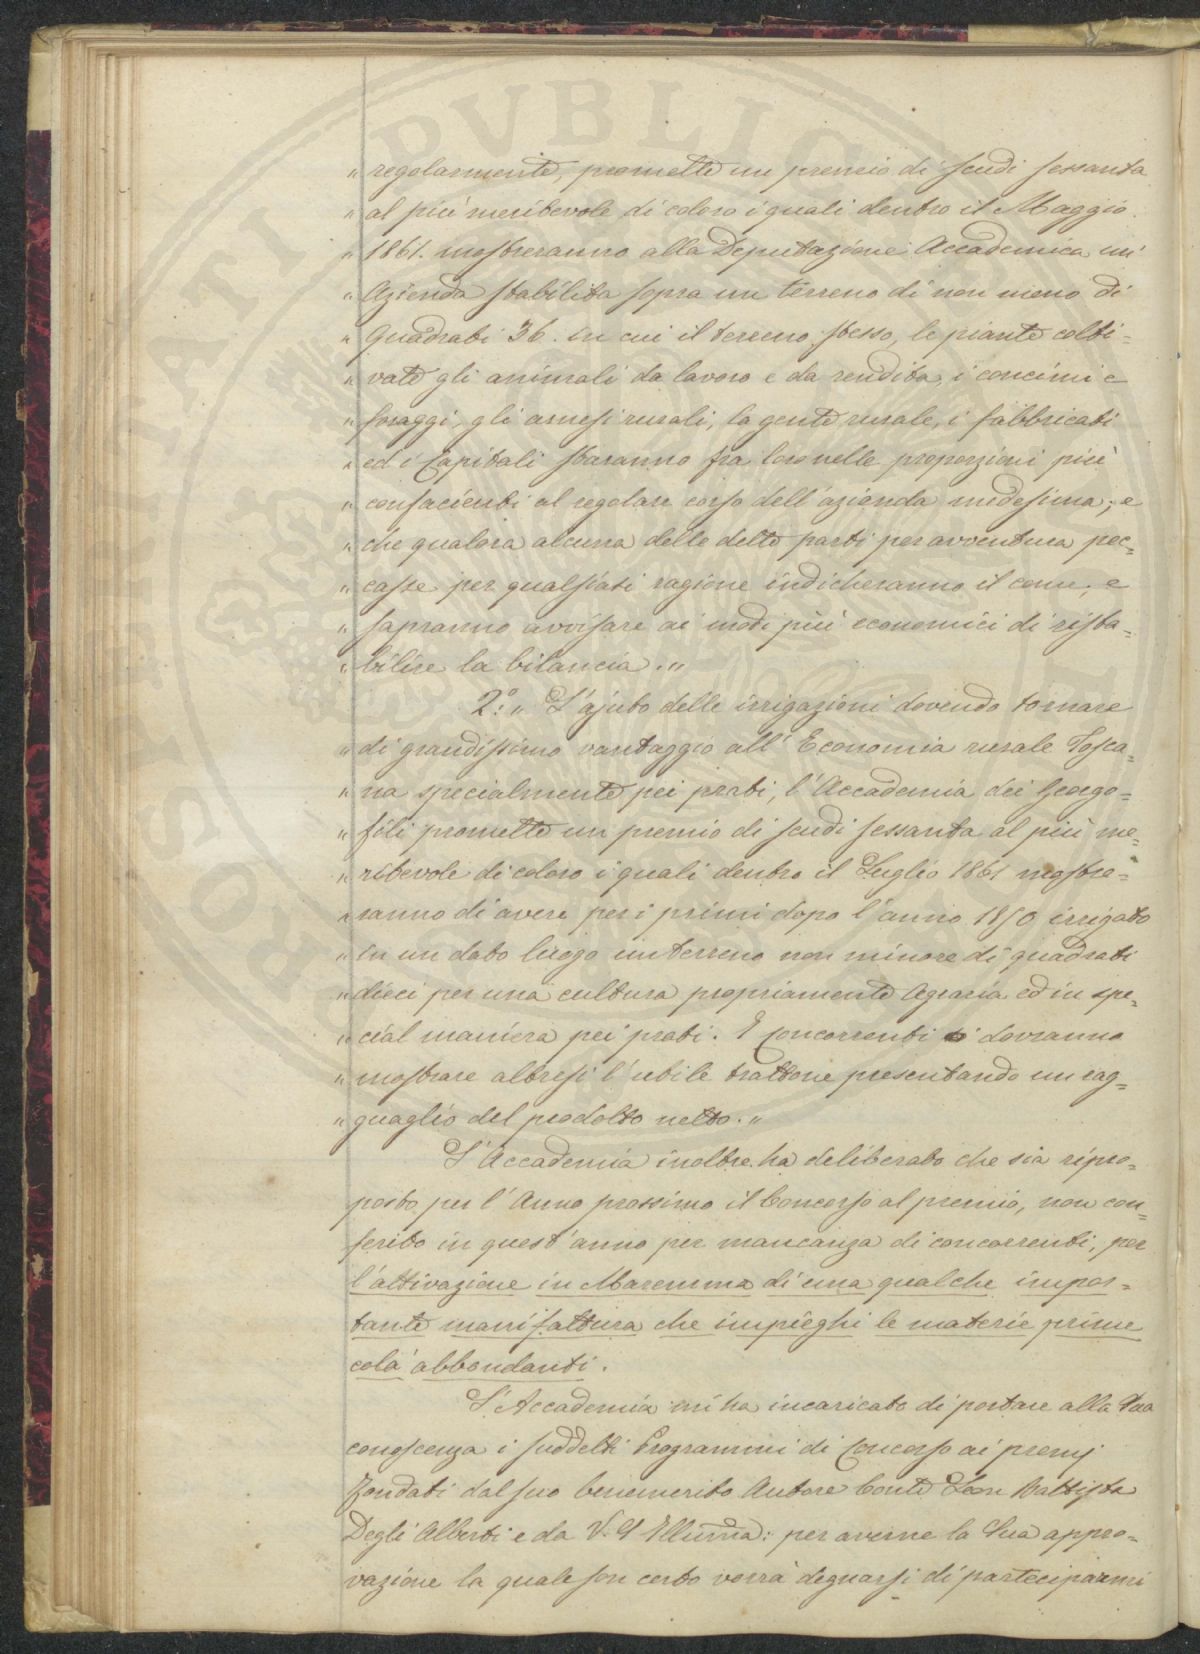 „ regolarmente, promette un premio di scudi sessanta
„ al più meritevole di coloro i quali dentro il Maggio
„ 1861. mostreranno alla Deputazione Accademica un'
„ Azienda stabilita sopra un terreno di non meno di
„ Quadrati 36. in cui il terreno stesso, le piante colti=
„ vate gli animali da lavoro e da rendita, i concimi e
„ foraggi, gli arnesi rurali, la gente rurale, i fabbricati
„ ed i Capitali staranno fra loro nelle proporzioni più
„ confacienti al regolare corso dell'azienda medesima; e
„ che qualora alcuna delle dette parti per avventura pec=
„ casse per qualsiasi ragione indicheranno il come, e
„ sapranno avvisare ai modi più economici di rista=
„ bilire la bilancia.„
2.° „ L'ajuto delle irrigazioni dovendo tornare
„ di grandissimo vantaggio all'Economia rurale Tosca=
„ na specialmente pei prati, l'Accademia dei Georgo=
„ fili promette un premio di scudi sessanta al più me=
„ ritevole di coloro i quali dentro il Luglio 1861 mostre=
„ ranno di avere per i primi dopo l'anno 1850 irrigato
„ in un dato luogo un terreno non minore di quadrati
„ dieci per una cultura propriamente Agraria ed in spe=
„ cial maniera pei prati. I Concorrenti dovranno
„ mostrare altresì l'utile trattone presentando un rag=
„ guaglio del prodotto netto.„
L'Accademia inoltre ha deliberato che sia ripro=
posto per l'Anno prossimo il Concorso al premio, non con=
ferito in quest'anno per mancanza di concorrenti, per
l'attivazione in Maremma di una qualche impor=
tante manifattura che impieghi le materie prime
colà abbondanti.
L'Accademia mi ha incaricato di portare alla Sua
conoscenza i suddetti Programmi di Concorso ai premj
fondati dal suo benemerito Autore Conte Leon Battista
Degli Alberti e da V. S Ellustrma: per averne la Sua appro=
vazione la quale son certo vorrà degnarsi di parteciparmi
PVBLIC